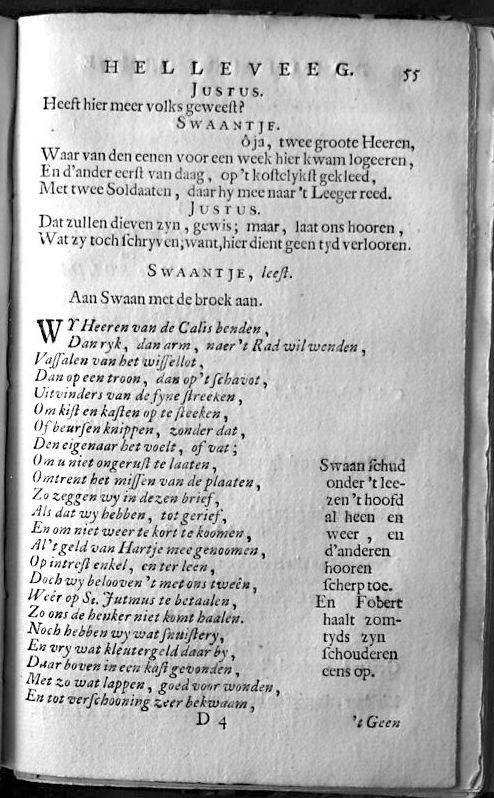 HELLEVEEG. 55
JUSTUS.
Heeft hier meer volks geweeſt?
SWAANTJE.
ôja, twee groote Heeren,
Waar van den eenen voor een week hier kwam logeeren,
En d'ander eerſt van daag, op 't koſtelykſt gekleed,
Met twee Soldaaten, daar hy mee naar 't Leeger reed.
JUSTUS.
Dat zullen dieven zyn, gewis; maar, laat ons hooren,
Wat zy toch ſchryven; want, hier dient geen tyd verlooren.
SWAANTJE, leeſt.
Aan Swaan met de broek aan.
WY Heeren van de Calis benden,
Dan ryk, dan arm, naer 't Rad wil wenden,
Vaſſalen van het wiſſellot,
Dan op een troon, dan op 't ſchavot,
Uitvinders van de fyne ſtreeken,
Om kiſt en kaſten op te ſteeken,
Of beurſen knippen, zonder dat,
Den eigenaar het voelt, of vat;
Om u niet ongeruſt te laaten,
Omtrent het miſſen van de plaaten,
Zo zeggen wy in dezen brief,
Als dat wy hebben, tot gerief,
En om niet weer te kort te koomen,
Al 't geld van Hartje mee genoomen,
Op intreſt enkel, en ter leen,
Doch wy belooven 't met ons tweên,
Weêr op St. Jutmus te betaalen,
Zo ons de henker niet komt haalen.
Noch hebben wy wat ſnuiſtery,
En vry wat kleutergeld daar by,
Daar boven in een kaſt gevonden,
Met zo wat lappen, goed voor wonden,
En tot verſchooning zeer bekwaam,
Swaan ſchud
onder 't lee-
zen 't hoofd
al heen en
weer, en
d'anderen
hooren
ſcherp toe.
En Fobert
haalt zom-
tyds zyn
ſchouderen
eens op.
D 4 't Geen